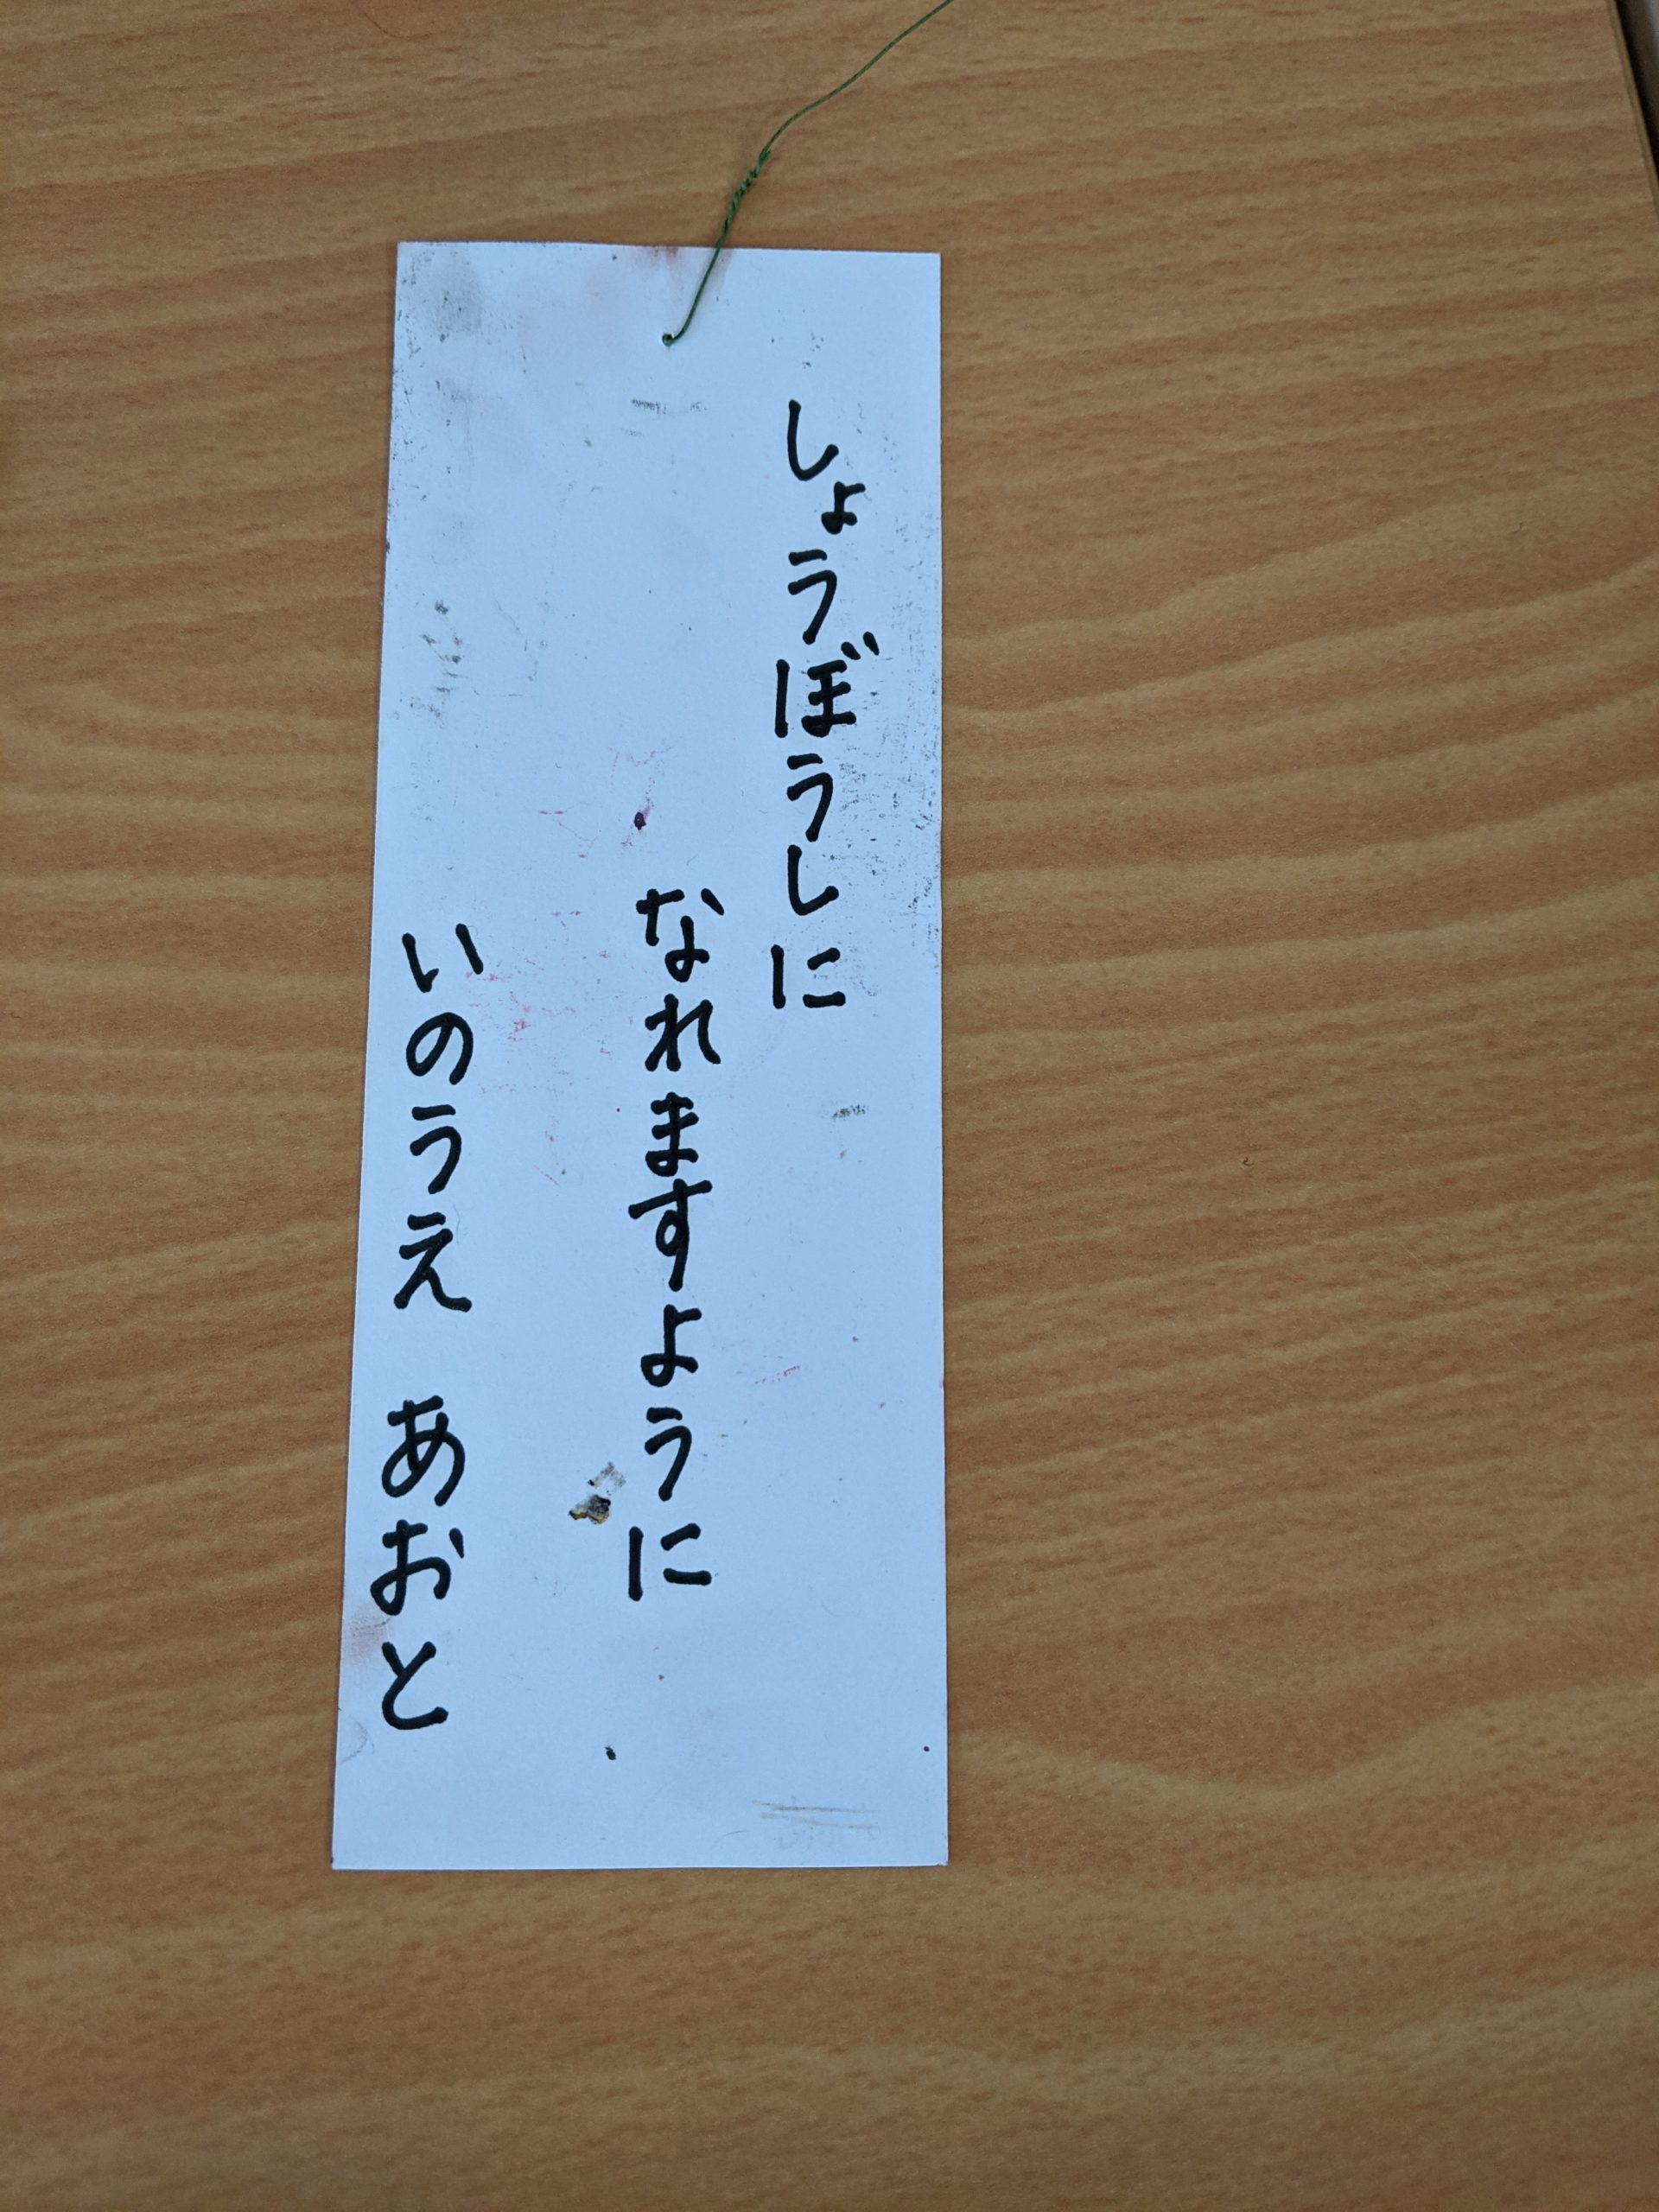 しょうぼうしに
なれますように
いのうえ あおと